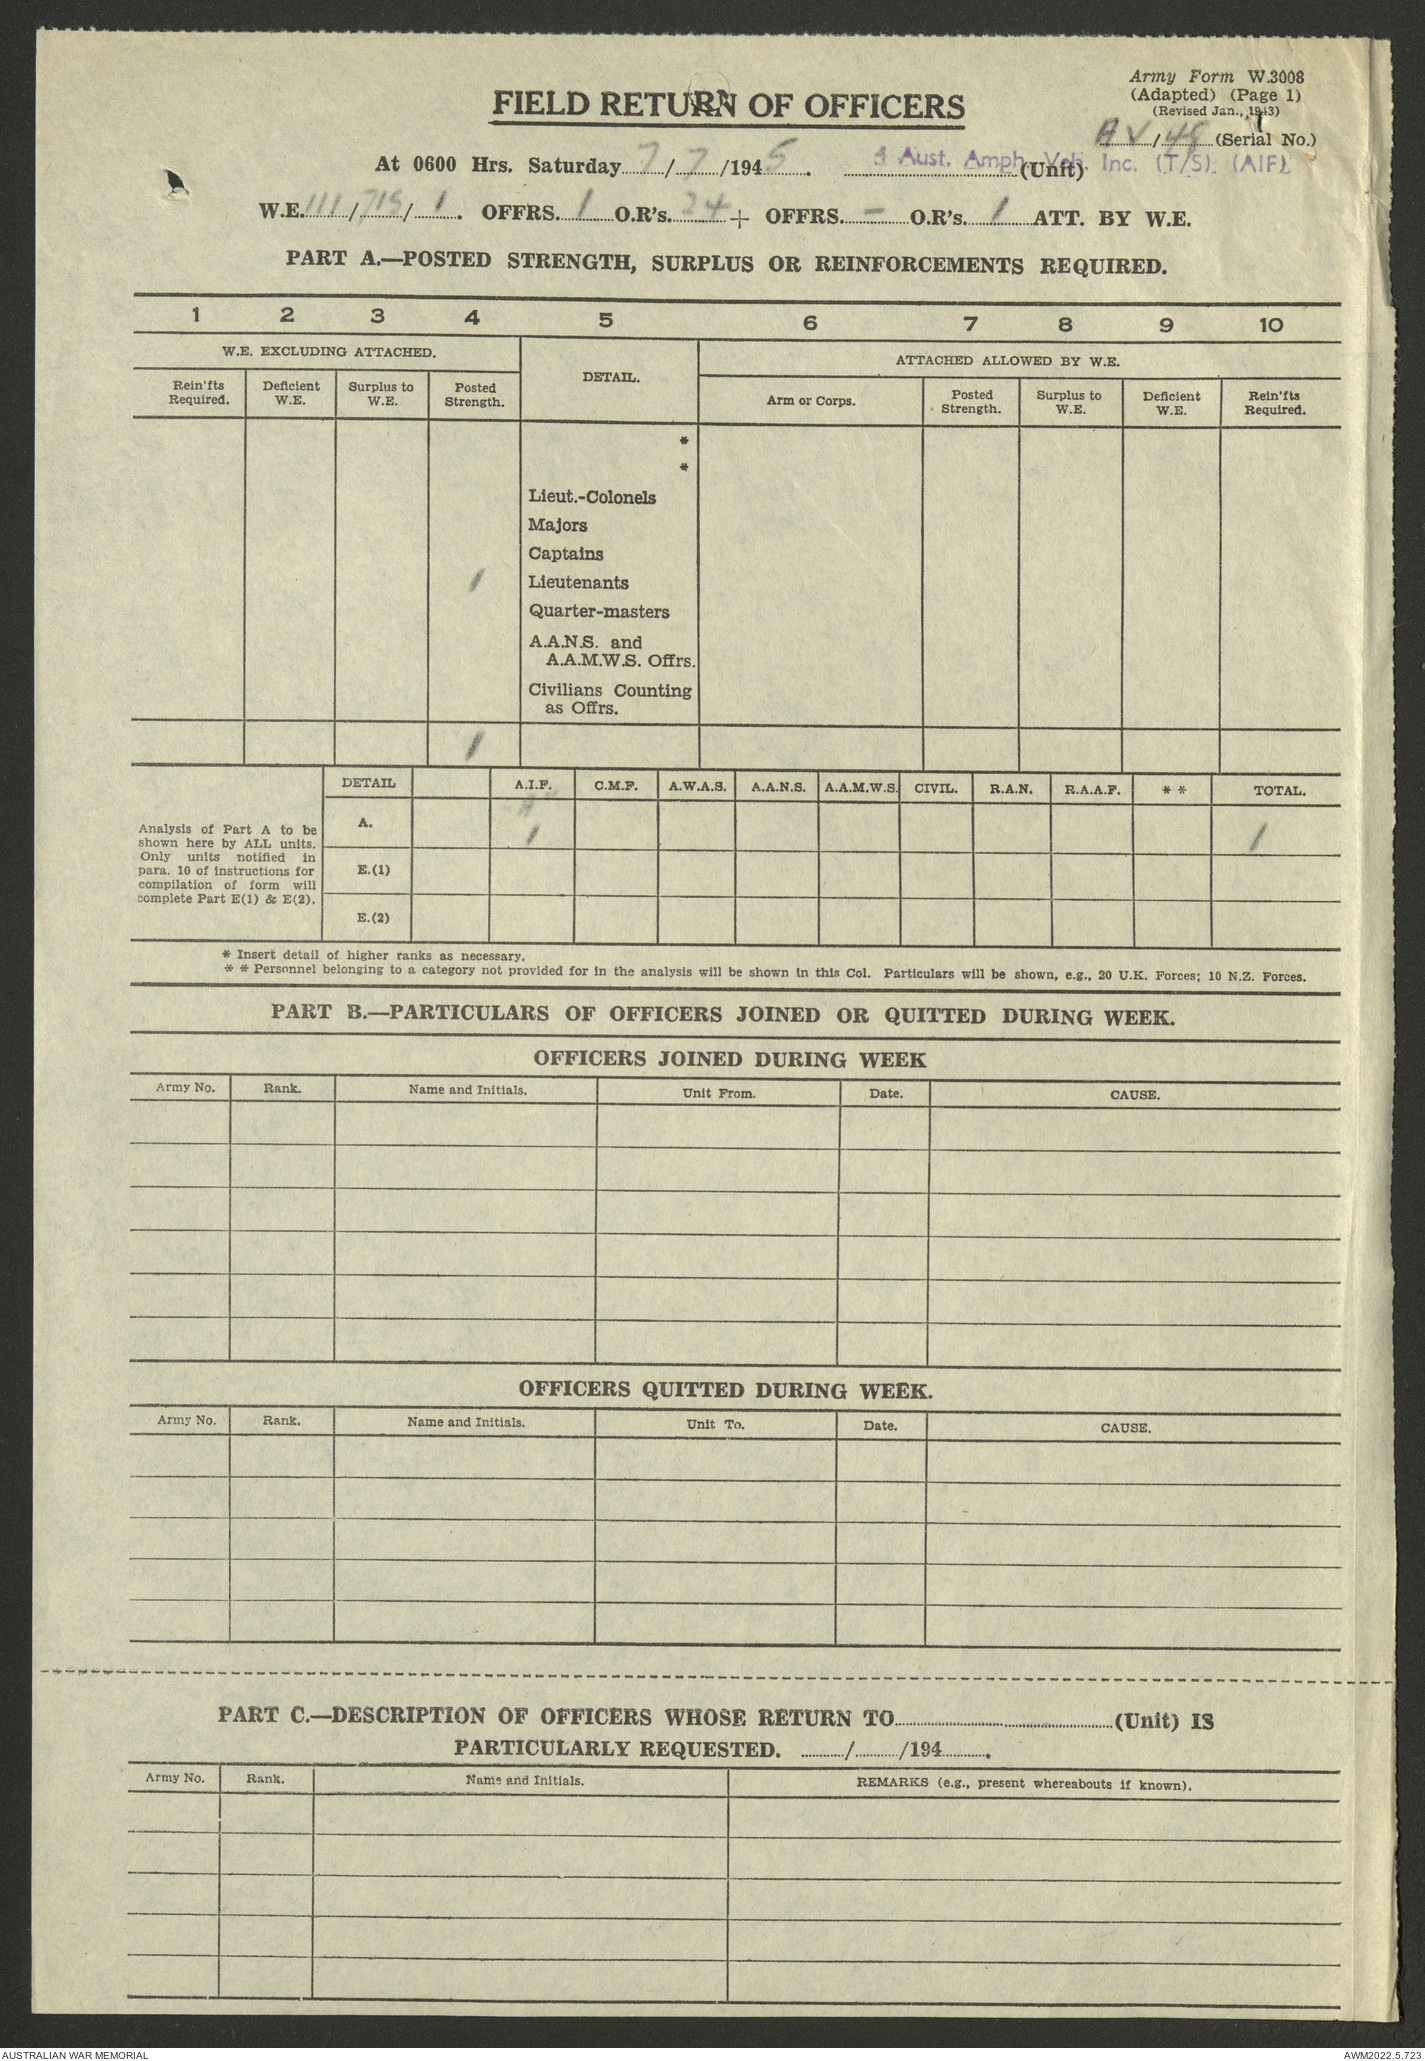 Army Form W.3008
(Adapted) (Page 1)
(Revised Jan., 1943)
FIELD RETURN OF OFFICERS
AV/48 (Serial No.)
At 0600 Hrs. Saturday 7/7/1945. 4 Aust. Amph. Veh. Inc. (T/S) (AIF) (Unit)
W.E. 111/719/1. OFFRS. 1 O.R's. 24 + OFFRS. – O.R's. 1 ATT. BY W.E.
PART A.—POSTED STRENGTH, SURPLUS OR REINFORCEMENTS REQUIRED.
1 2 3 4 5 6 7 8 9 10
W.E. EXCLUDING ATTACHED. DETAIL. ATTACHED ALLOWED BY W.E.
Rein'fts Required. Deficient W.E. Surplus to W.E. Posted Strength. Arm or Corps. Posted Strength. Surplus to W.E. Deficient W.E. Rein'fts Required.
*
*
Lieut.-Colonels
Majors
Captains
1 Lieutenants
Quarter-masters
A.A.N.S. and
A.A.M.W.S. Offrs.
Civilians Counting
as Offrs.
1
DETAIL A.I.F. C.M.F. A.W.A.S. A.A.N.S. A.A.M.W.S. CIVIL. R.A.N. R.A.A.F. * * TOTAL.
Analysis of Part A to be
shown here by ALL units.
Only units notified in
para. 10 of instructions for
compilation of form will
complete Part E(1) & E(2).
A. 1 1
E.(1)
E.(2)
* Insert detail of higher ranks as necessary.
* * Personnel belonging to a category not provided for in the analysis will be shown in this Col. Particulars will be shown, e.g., 20 U.K. Forces; 10 N.Z. Forces.
PART B.—PARTICULARS OF OFFICERS JOINED OR QUITTED DURING WEEK.
OFFICERS JOINED DURING WEEK
Army No. Rank. Name and Initials. Unit From. Date. CAUSE.
OFFICERS QUITTED DURING WEEK.
Army No. Rank. Name and Initials. Unit To. Date. CAUSE.
PART C.—DESCRIPTION OF OFFICERS WHOSE RETURN TO (Unit) IS
PARTICULARLY REQUESTED. / /194 .
Army No. Rank. Name and Initials. REMARKS (e.g., present whereabouts if known).
AUSTRALIAN WAR MEMORIAL AWM2022.5.723